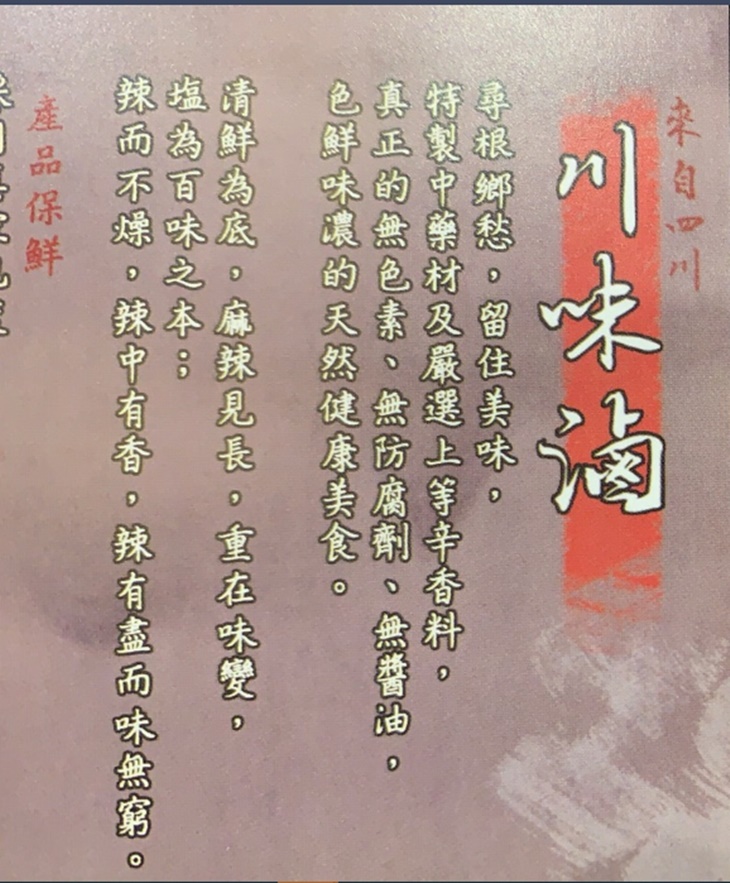 來自四川
川味滷
尋根鄉愁，留住美味，
特製中藥材及嚴選上等辛香料，
真正的無色素、無防腐劑、無醬油，
色鮮味濃的天然健康美食。
清鮮為底，麻辣見長，重在味變，
塩為百味之本；
辣而不燥，辣中有香，辣有盡而味無窮。
產品保鮮